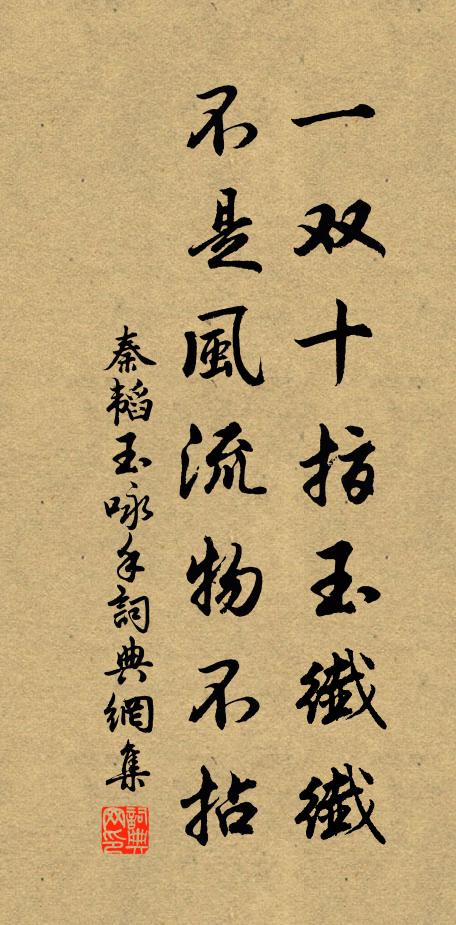 一双十指玉纖纖
不是風流物不拈
秦韜玉咏手詞典網集
詞典网印